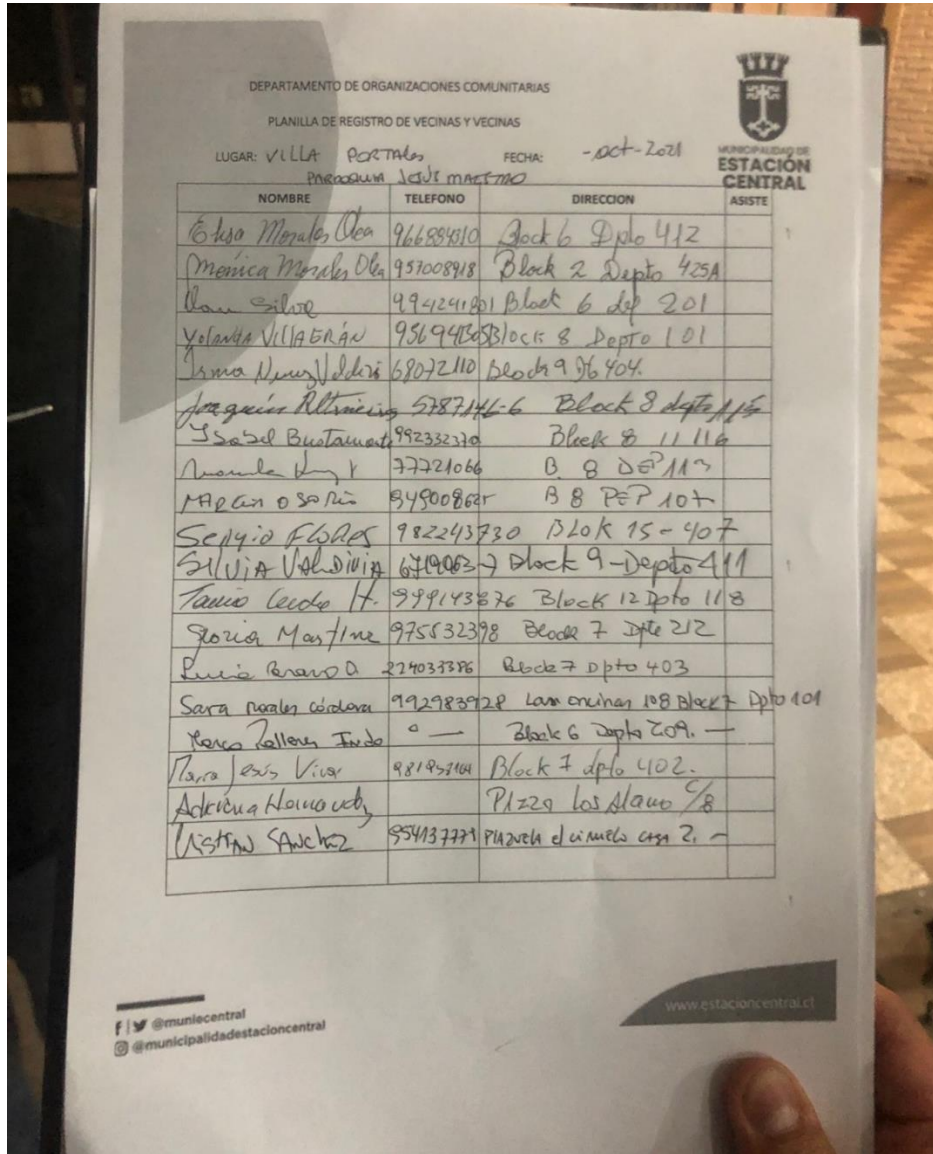 DEPARTAMENTO DE ORGANIZACIONES COMUNITARIAS
PLANILLA DE REGISTRO DE VECINAS Y VECINAS
LUGAR: VILLA PORTALES FECHA: -oct-2021
PARROQUIA JESÚS MAESTRO
MUNICIPALIDAD DE
ESTACIÓN
CENTRAL
NOMBRE TELEFONO DIRECCION ASISTE
Elisa Morales Olea 966884310 Block 6 Dpto 412
Monica Morales Olea 957008918 Block 2 Depto 425A
Silva 994241801 Block 6 dep 201
Yolanda VILLAGRÁN Block 8 Depto 101
Irma 68072110 Block 9 404.
Joaquín 5787146-6 Block 8 depto 115
Isabel Bustamante 992332370 Block 8 11 116
77721066 B 8 DEP 113
OSORIO B 8 DEP 107
Sergio FLORES 982243730 BLOK 15-407
SILVIA VALDIVIA Block 9-Depto 411
H. 999143876 Block 12 Dpto 118
Gloria Martine 975532398 Block 7 Dpto 212
Lucia Bravo O 224033386 Block 7 Dpto 403
Sara rosales córdova 992983928 Las encinas 108 Block 7 Dpto 101
— Block 6 Depto 209. —
Maria Jesús Vivar Block 7 dpto 402.
Adriana Plaza Los Alamo C/8
SANCHEZ 954137771 PLAZUELA el ciruelo casa 2. -
@muniecentral
@municipalidadestacioncentral
www.estacioncentral.cl